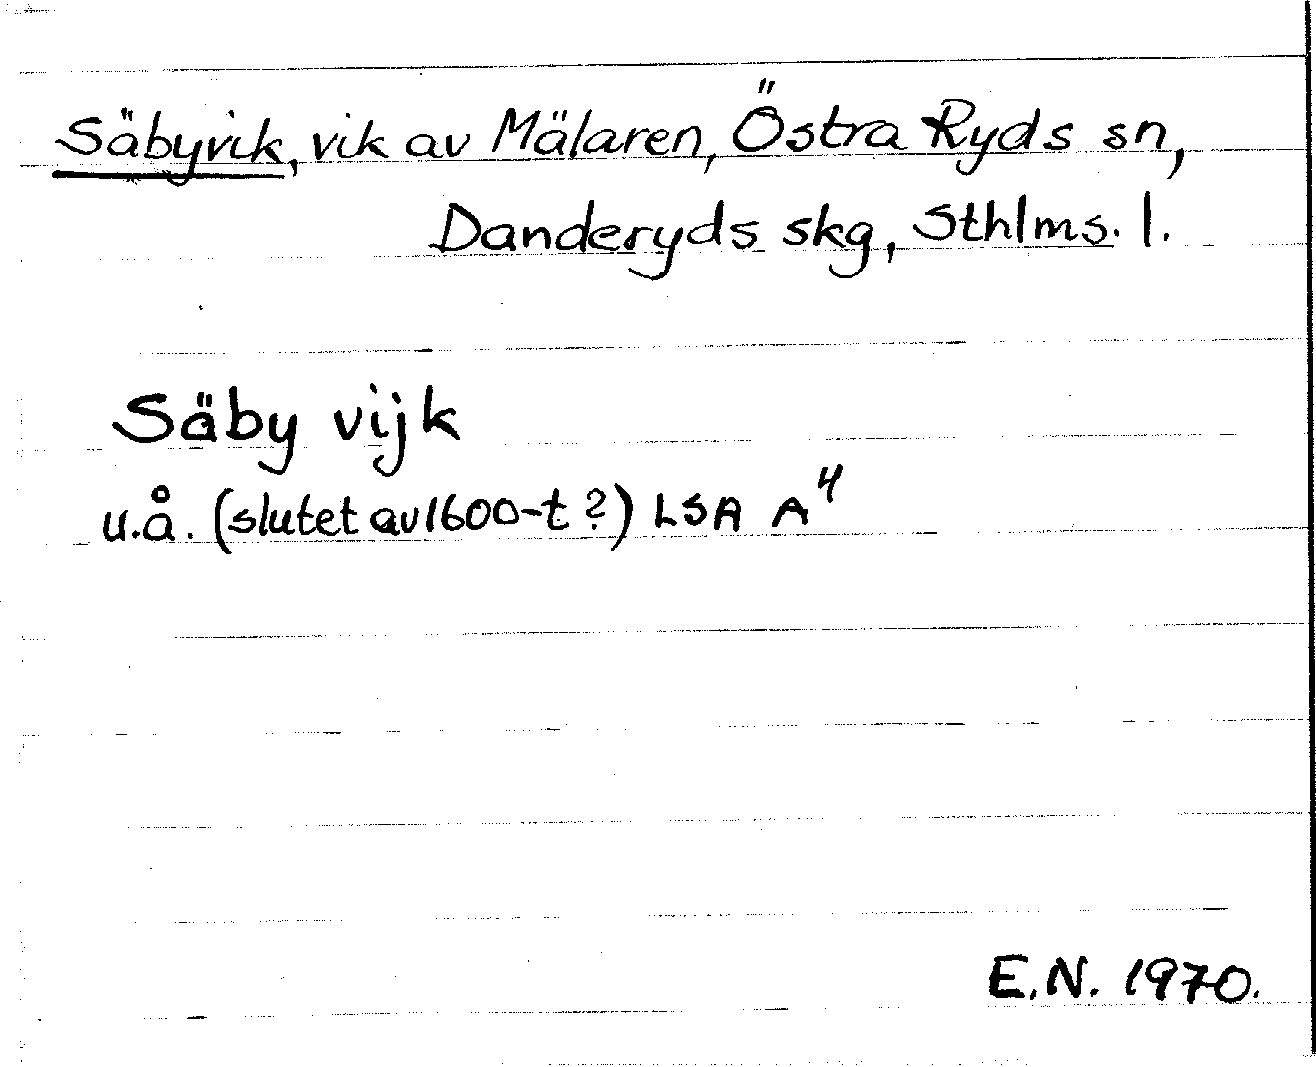 Säbyvik, vik av Mälaren, Östra Ryds sn,
Danderyds skg, Sthlms. l.
Säby vijk
u.å. (slutet av 1600-t ?) LSA A⁴
E.N. 1970.